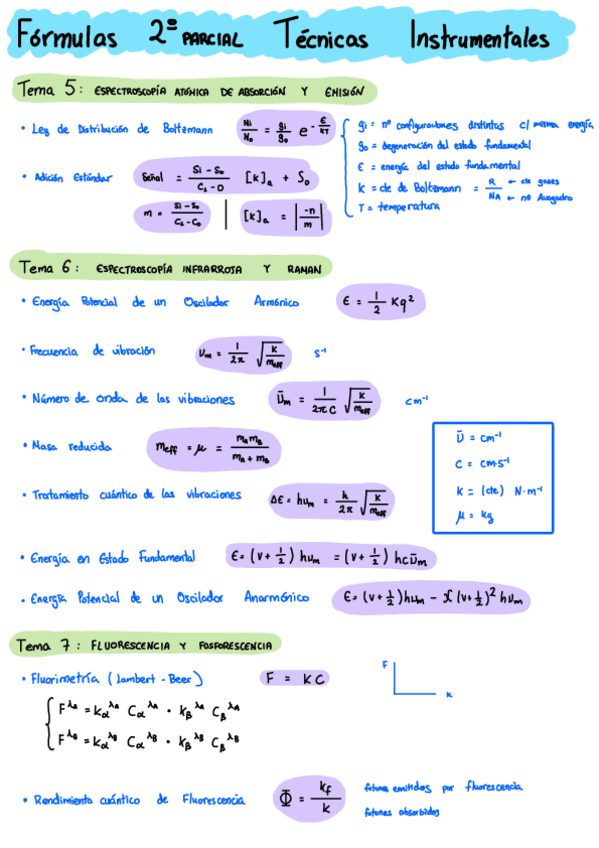 Fórmulas 2º PARCIAL Técnicas Instrumentales
Tema 5: ESPECTROSCOPÍA ATÓMICA DE ABSORCIÓN Y EMISIÓN
• Ley de Distribución de Boltzmann Ni/N₀ = gi/g₀ e^(-ϵ/KT)
gi = nº configuraciones distintas c/ misma energía
g₀ = degeneración del estado fundamental
ϵ = energía del estado fundamental
K = cte de Boltzmann = R/NA ← cte gases ← nº Avogadro
T = temperatura
• Adición Estándar Señal = (Si - S₀)/(C₁ - 0) [K]a + S₀
m = (Si - S₀)/(C₁ - C₀) | [K]a = |-n/m|
Tema 6: ESPECTROSCOPÍA INFRARROJA Y RAMAN
• Energía Potencial de un Oscilador Armónico ϵ = 1/2 Kq²
• Frecuencia de vibración νm = 1/2π √(K/meff) s⁻¹
• Número de onda de las vibraciones ν̄m = 1/2πc √(K/meff) cm⁻¹
• Masa reducida meff = μ = mA mB/(mA + mB)
ν̄ = cm⁻¹
C = cm·s⁻¹
K = (cte) N·m⁻¹
μ = kg
• Tratamiento cuántico de las vibraciones Δϵ = hνm = h/2π √(K/meff)
• Energía en Estado Fundamental ϵ = (v + 1/2) hνm = (v + 1/2) hcν̄m
• Energía Potencial de un Oscilador Anarmónico ϵ = (v + 1/2) hνm - χ (v + 1/2)² hνm
Tema 7: FLUORESCENCIA Y FOSFORESCENCIA
• Fluorimetría (Lambert - Beer) F = KC
F
K
F^λA = kα^λA Cα^λA · kβ^λA Cβ^λA
F^λB = kα^λB Cα^λB · kβ^λB Cβ^λB
• Rendimiento cuántico de Fluorescencia Φ = kf/k
fotones emitidos por fluorescencia
fotones absorbidos